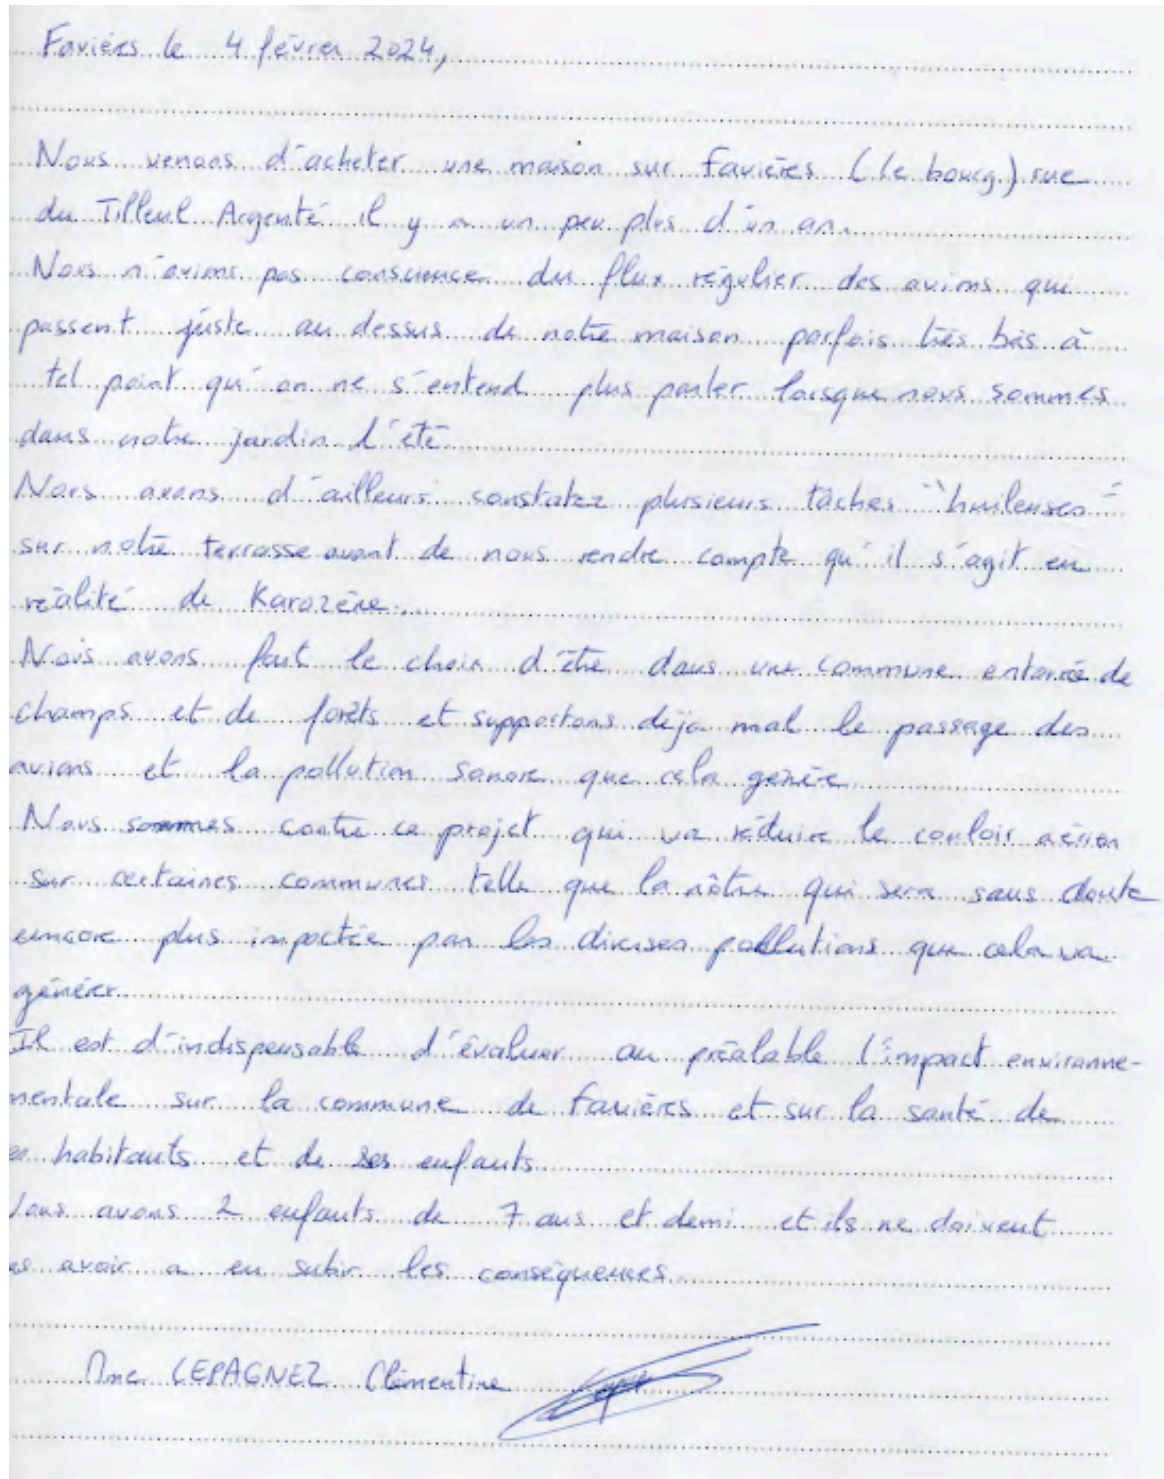 Favières le 4 février 2024,
Nous venons d'acheter une maison sur Favières (le bourg) rue
du Tilleul Argenté il y a un peu plus d'un an.
Nous n'avions pas conscience du flux régulier des avions qui
passent juste au dessus de notre maison parfois très bas à
tel point qu'on ne s'entend plus parler lorsque nous sommes
dans notre jardin l'été
Nous avons d'ailleurs constatez plusieurs tâches "huileuses"
sur notre terrasse avant de nous rendre compte qu'il s'agit en
réalité de Karozène.
Nous avons fait le choix d'être dans une commune entourée de
champs et de forêts et supportons déjà mal le passage des
avions et la pollution sonore que cela génère
Nous sommes contre ce projet qui va réduire le couloir aérien
sur certaines communes telle que la nôtre qui sera sans doute
encore plus impactée par les diverses pollutions que cela va
générer
Il est d'indispensable d'évaluer au préalable l'impact environne-
mentale sur la commune de Favières et sur la santé de
es habitants et de ses enfants
Nous avons 2 enfants de 7 ans et demi et ils ne doivent
as avoir a en subir les conséquences.
Mme LEPAGNEZ Clémentine